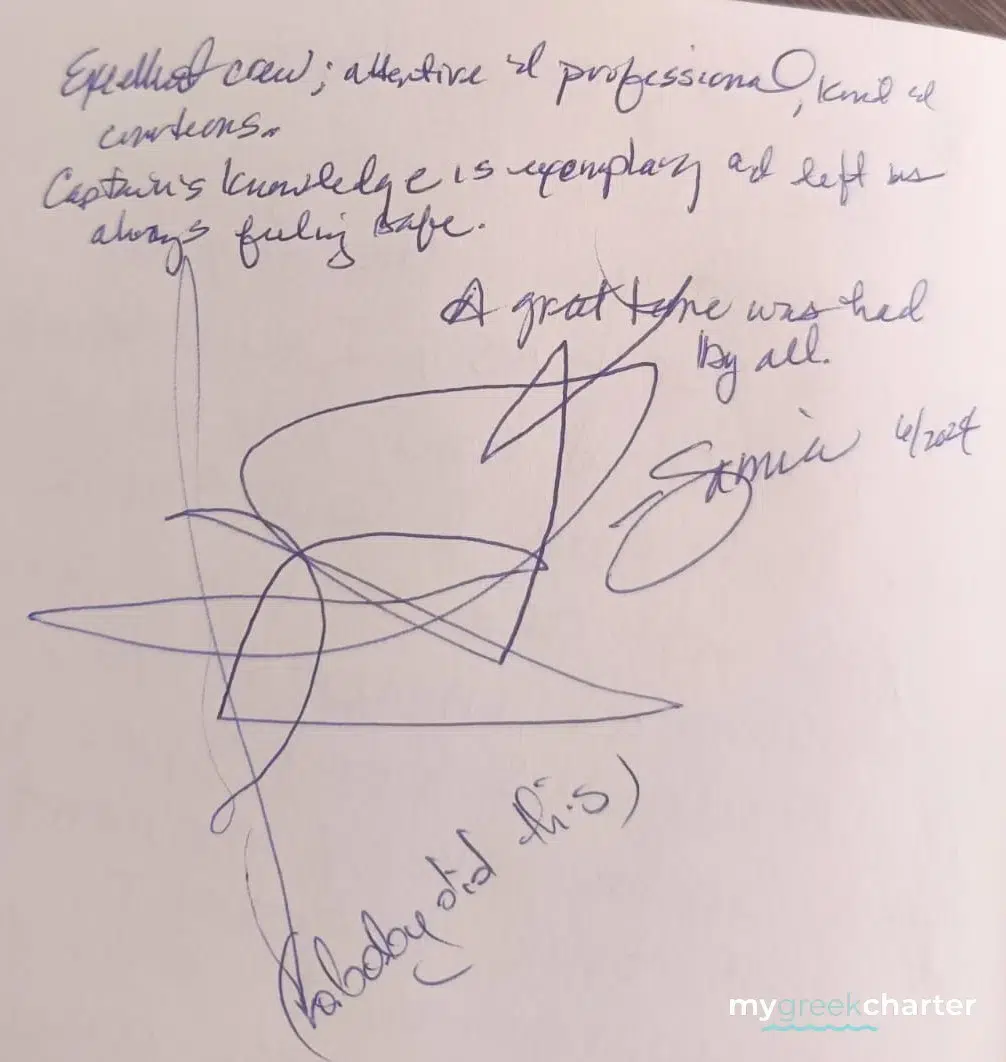 Excellent crew; attentive & professional, kind &
courteous.
Captain's knowledge is exemplary and left us
always feeling safe.
A great time was had
by all.
Samia 6/2024
did this)
mygreekcharter